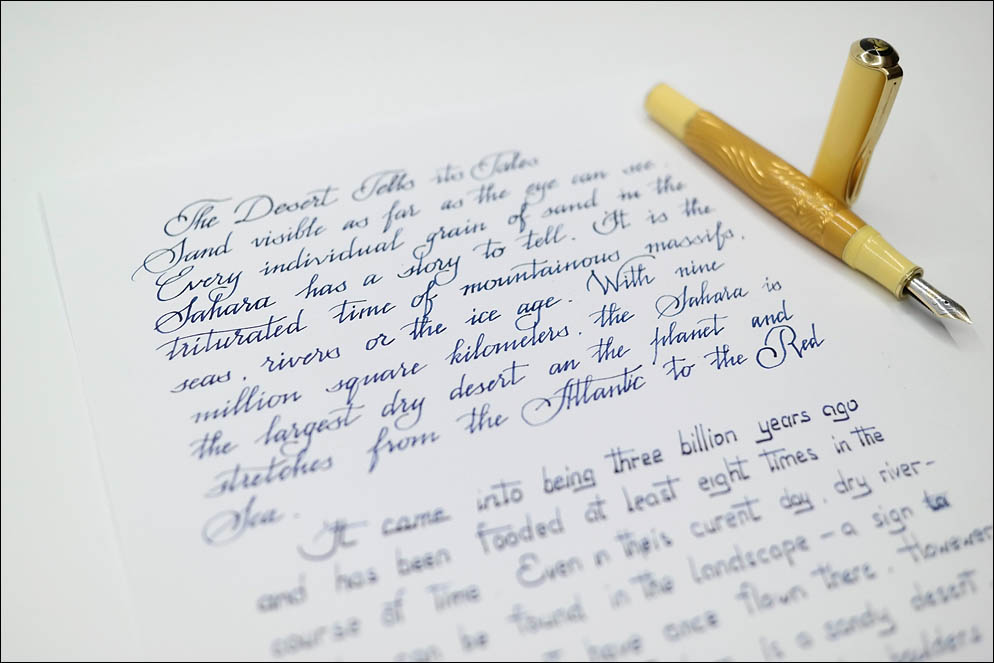 The Desert Tells its Tales
Sand visible as far as the eye can see.
Every individual grain of sand in the
Sahara has a story to tell. It is the
triturated time of mountainous massifs,
seas, rivers or the ice age. With nine
million square kilometers, the Sahara is
the largest dry desert an the planet and
stretches from the Atlantic to the Red
Sea.
It came into being three billion years ago
and has been fooded at least eight times in the
course of time Even n theis curent day, dry river-
can be found in the landscape - a sign
have once flown there. However
is a sandy desert
boulders